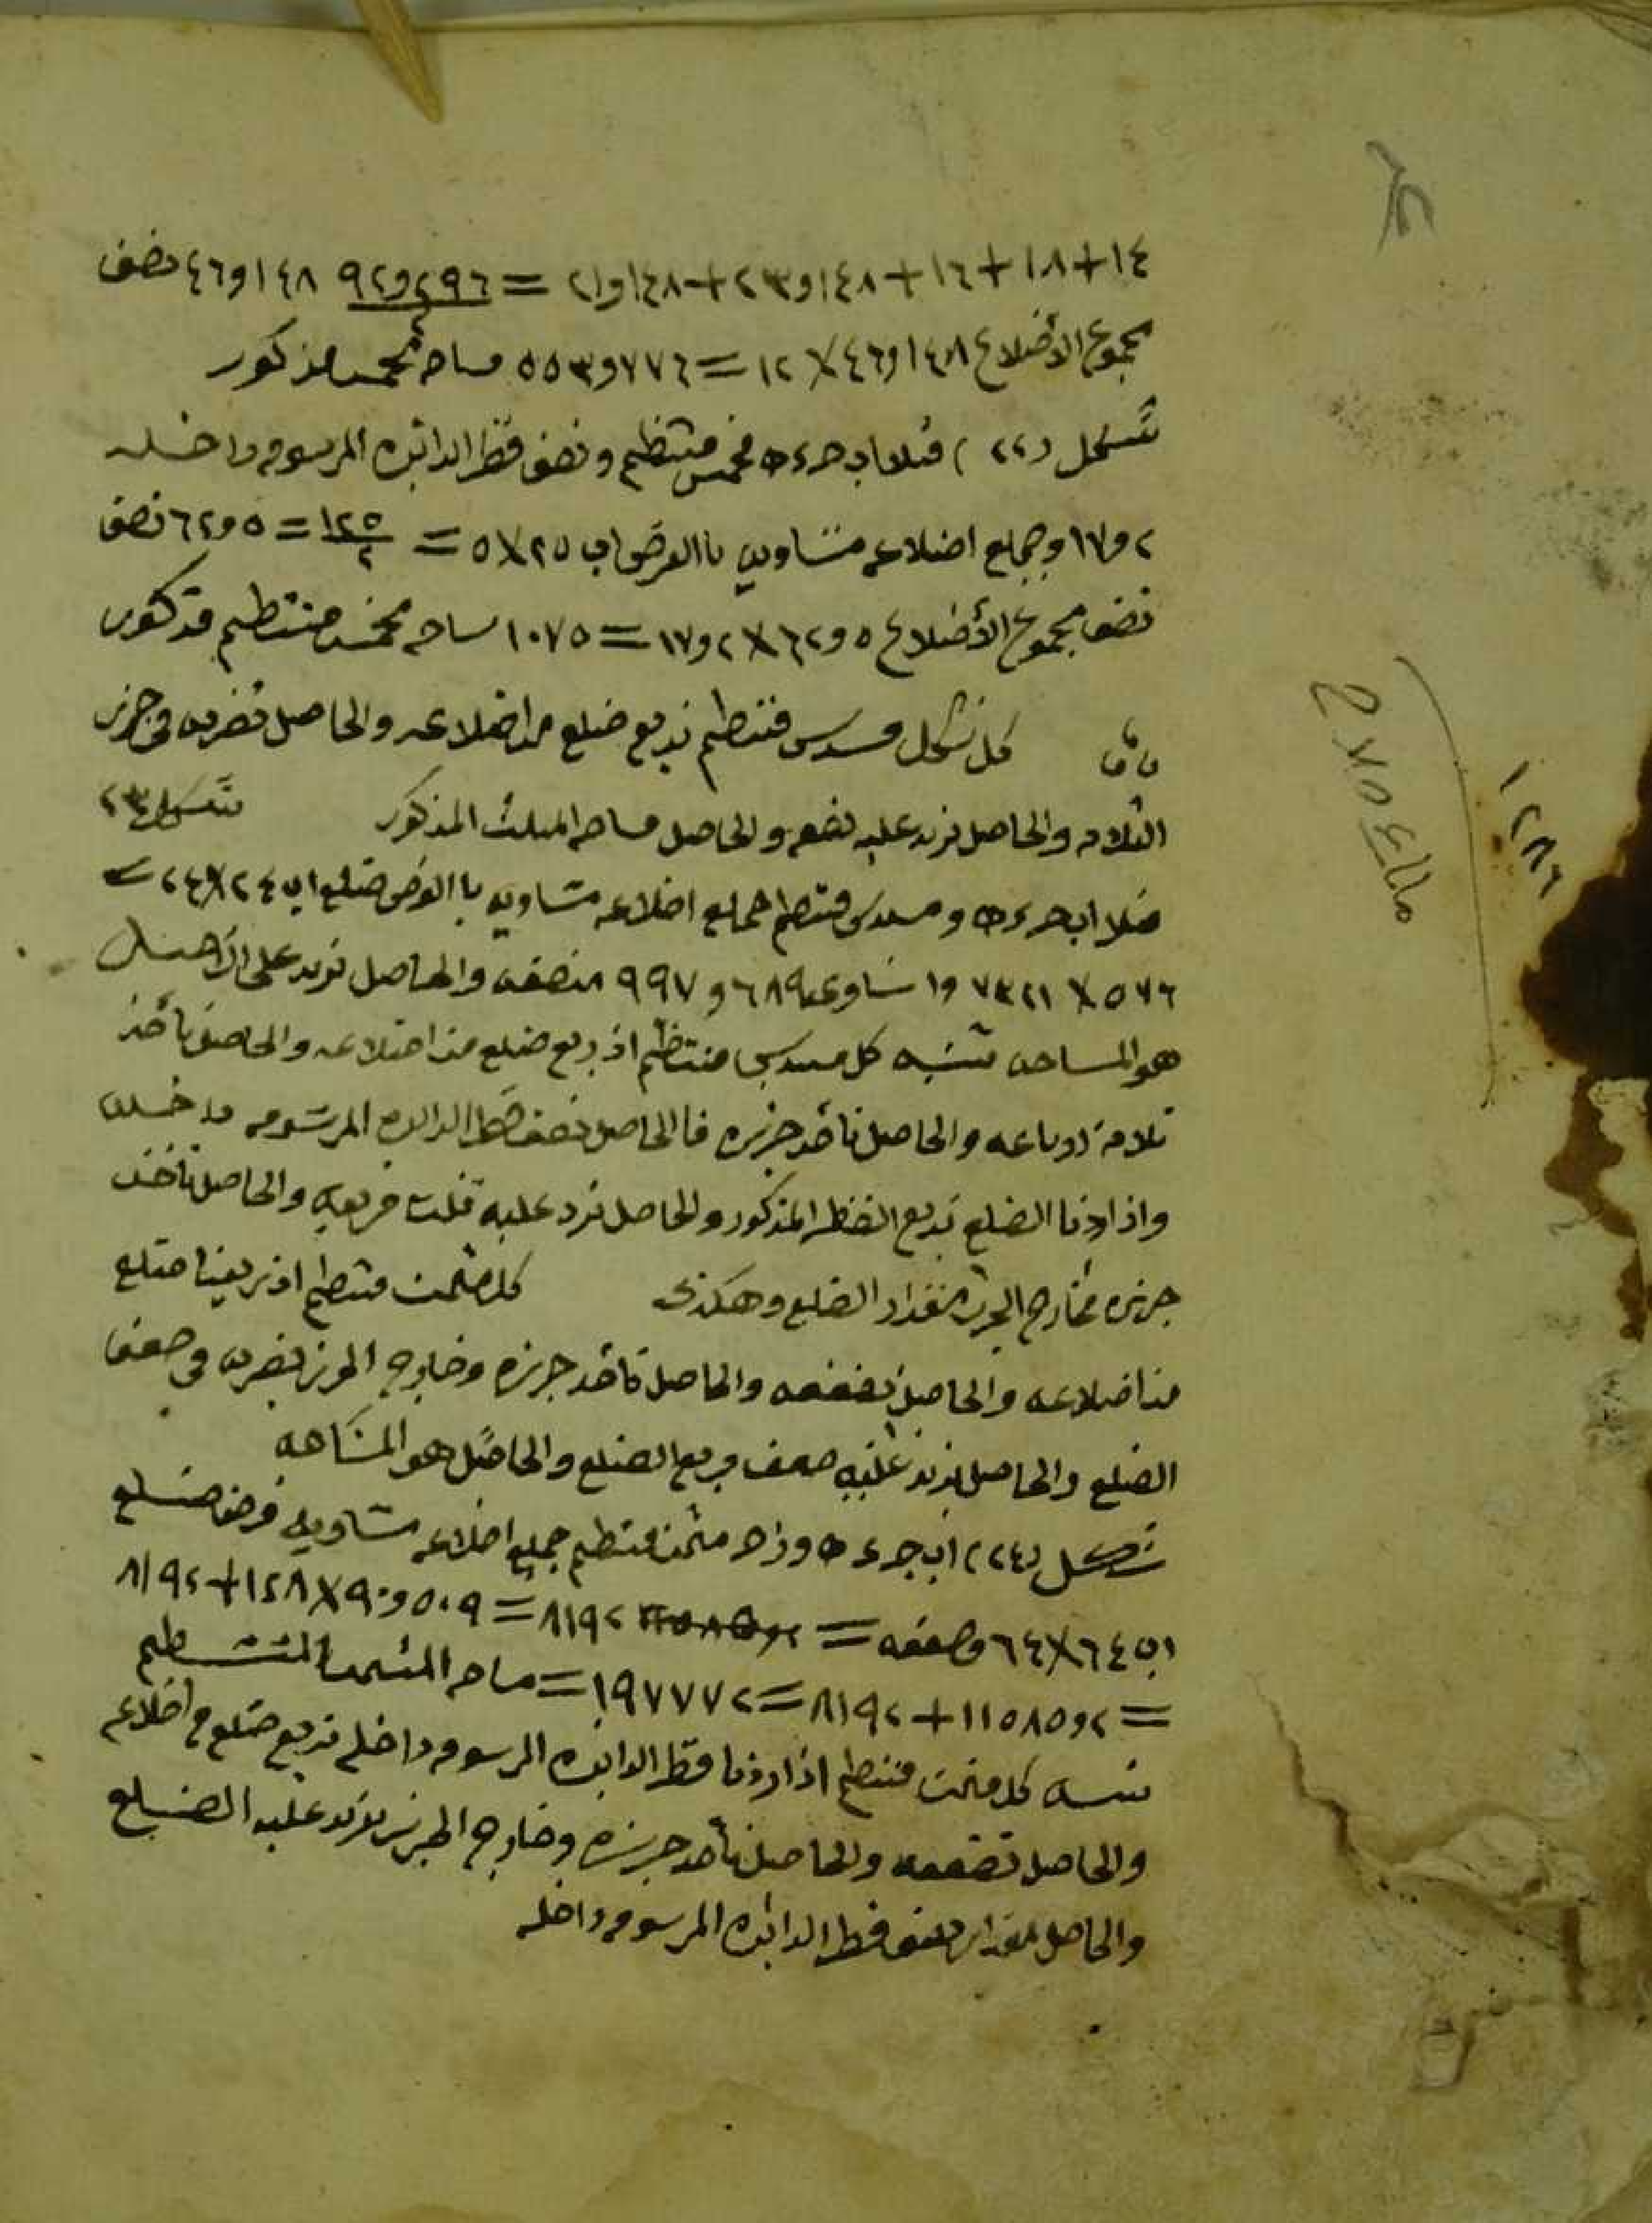 ١٤+١٨+١٦+١٤٨و٢٣+١٤٨و٢١ = ٢٩٦و٩٢ ١٤٨و٤٦ نصف
٢
مجموع الأضلاع ١٤٨و٤٦ × ١٢ = ٧٧٦و٥٥٣ مساحه مخمس مذكور
شكل (٢٢) مثلا اب حء ه مخمس منتظم ونصف قطر الدائره المرسومه داخله
٢و١٧ وجميع اضلاعه متساويه باالفرض اب ٢٥×٥ = ١٢٥/٢ = ٥و٦٢ نصف
نصف مجموع الأضلاع ٥و٦٢×٢و١٧ = ١٠٧٥ مساحه مخمس منتظم مذكور
كل شكل مسدس منتظم نربع ضلع من اضلاعه والحاصل نضربه في جزر
الثلاثه والحاصل نزيد عليه نصفه والحاصل مساحه المثلث المذكور شكل ٢٣
مثلا اب حء ه و مسدس منتظم جميع اضلاعه متساويه باالفرض ضلع اب ٢٤×٢٤ =
٥٧٦ × ٧٣٢١ و١ تساوي ٦٨٩ و ٩٩٧ نصفه والحاصل نزيد على
هو المساحه تنبيه كل مسدس منتظم اذ ربع ضلع من اضلاعه والحاصل نأخذ
ثلاثة ارباعه والحاصل نأخذ جزره فاالحاصل نصف قطر الدائره المرسومه داخله
واذا اردنا الضلع نربع القطر المذكور والحاصل نزد عليه ثلث مربعه والحاصل نأخذ
جزره فخارج الجزر مقدار الضلع وهكذى كل مثمن منتظم اذ ربعنا ضلع
من اضلاعه والحاصل نضعفه والحاصل نأخذ جزره وخارج الجزر نضربه في ضعف
الضلع والحاصل نزيد عليه ضعف مربع الضلع والحاصل هو المساحه
شكل (٢٤) اب جء ه وزاح مثمن منتظم جميع اضلاعه متساويه فرض ضلع
اب ٦٤×٦٤ وضعفه = ٨١٩٢ = ٥٠٩و٩٠×١٢٨+٨١٩٢
= ٢و١١٥٨٥+٨١٩٢ = ١٩٧٧٧٢ = مساحه المثمن المنتظم
تنبيه كل مثمن منتظم اذا اردنا قطر الدائره المرسومه داخله نربع ضلع من اضلاعه
والحاصل نضعفه والحاصل نأخذ جزره وخارج الجزر نزيد عليه الضلع
والحاصل مقدار نصف قطر الدائره المرسومه داخله
١٢٨٦